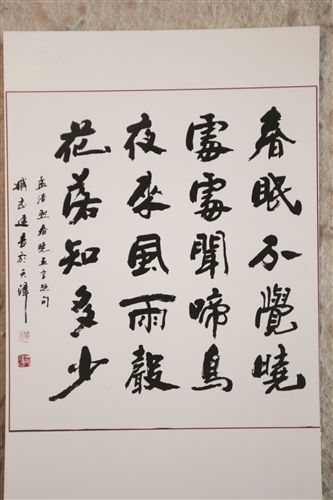 春眠不覺曉
處處聞啼鳥
夜來風雨聲
花落知多少
孟浩然春曉五言絶句
臧志建書於天津